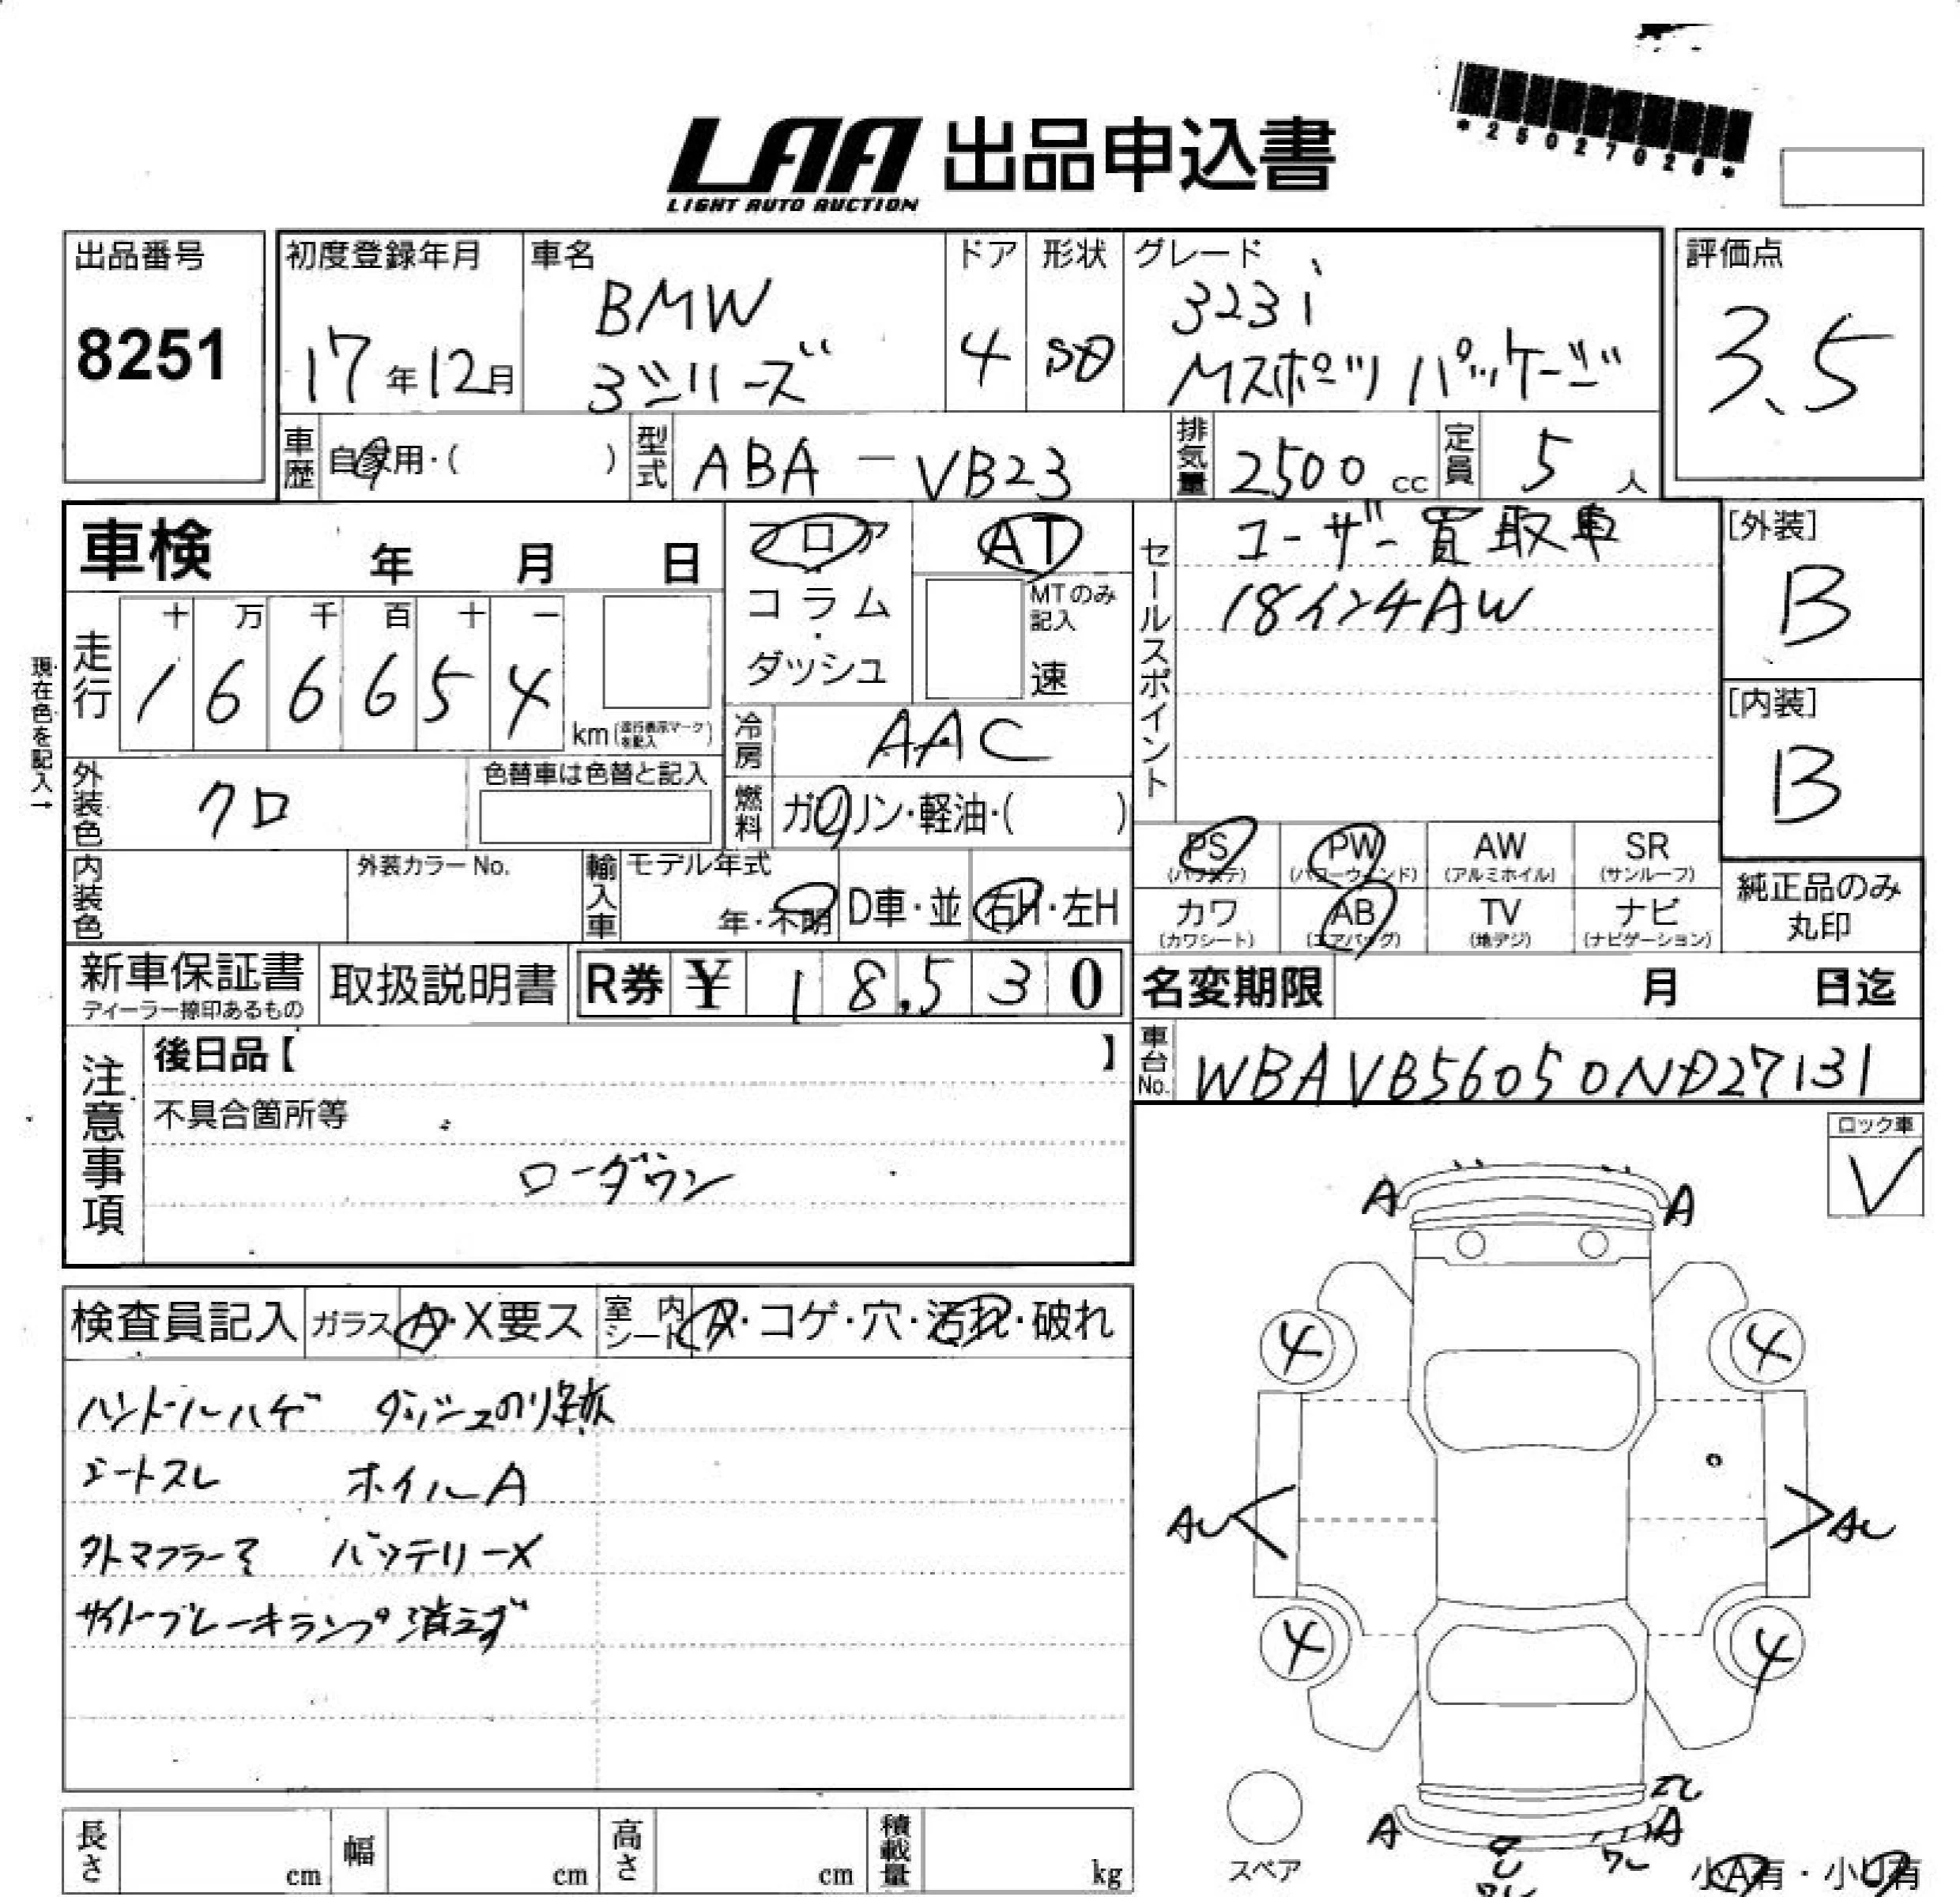 *25027026*
LAA 出品申込書
LIGHT AUTO AUCTION
出品番号
8251
初度登録年月
17年12月
車名
BMW
3シリーズ
ドア
4
形状
SD
グレード
323i
Mスポーツ パッケージ
評価点
3.5
車歴
自家用・( )
型式
ABA-VB23
排気量
2500 cc
定員
5 人
車検 年 月 日
フロア
コラム
・
ダッシュ
AT
MTのみ
記入
速
セールスポイント
ユーザー買取車
18インチAW
[外装]
B
[内装]
B
現在色を記入→
走行
十 万 千 百 十 一
1 6 6 6 5 4
km(走行表示マークを記入)
冷房
AAC
外装色
クロ
色替車は色替と記入
燃料
ガソリン・軽油・( )
PS
(パワステ)
PW
(パワーウィンド)
AW
(アルミホイル)
SR
(サンルーフ)
カワ
(カワシート)
AB
(エアバッグ)
TV
(地デジ)
ナビ
(ナビゲーション)
純正品のみ
丸印
内装色
外装カラーNo.
輸入車
モデル年式
年・不明
D車・並
右H・左H
新車保証書
ディーラー捺印あるもの
取扱説明書
R券 ¥ 18,530
名変期限 月 日迄
車台No.
WBAVB56050ND27131
注意事項
後日品【 】
不具合箇所等
ローダウン
ロック車
V
A A
検査員記入
ガラス A・X要ス
室内シート A・コゲ・穴・汚れ・破れ
ハンドルハゲ ダッシュのり跡
シートスレ ホイルA
外マフラーマ バッテリーX
サイドブレーキランプ消えず
4 4
AU AU
4 4
A A
スペア
小A有・小U有
長さ cm
幅 cm
高さ cm
積載量 kg